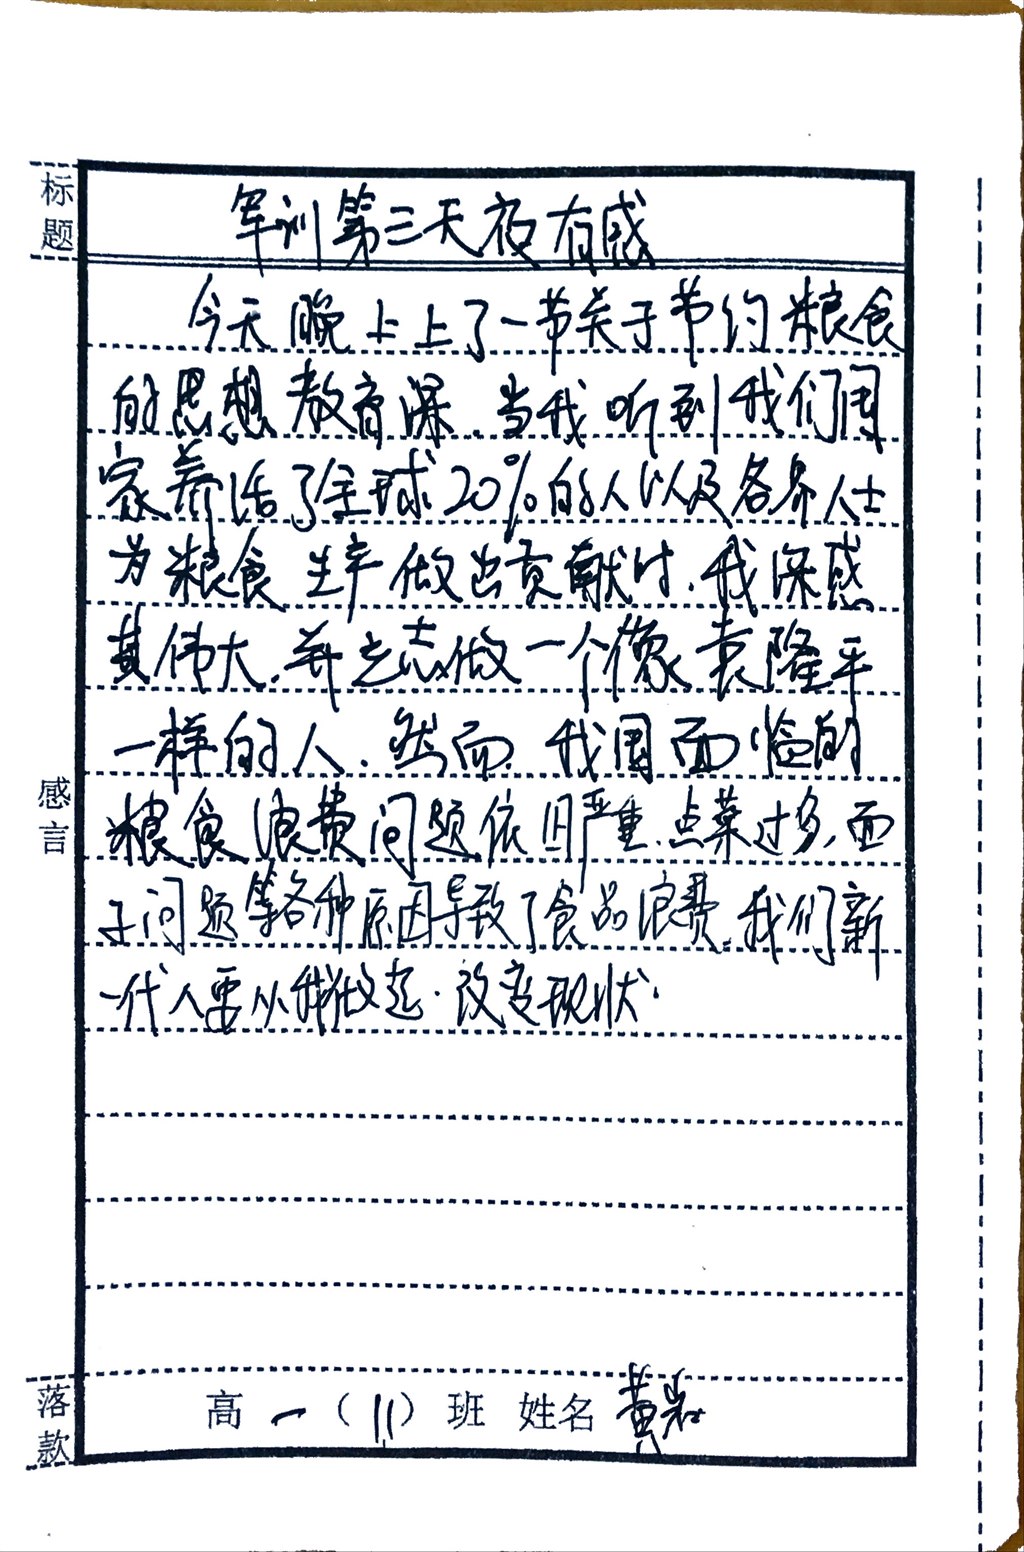 标题
军训第三天夜有感
今天晚上上了一节关于节约粮食
的思想教育课.当我听到我们国
家养活了全球20%的人以及各界人士
为粮食生产做出贡献时.我深感
其伟大.并立志做一个像袁隆平
一样的人.然而.我国面临的
粮食浪费问题依旧严重.点菜过多,面
子问题等各种原因导致了食品浪费.我们新
一代人要从我做起.改变现状.
感言
落款
高一(11)班 姓名 黄